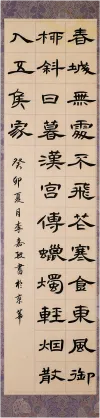 春城無處不飛花寒食東風御
柳斜日暮漢宮傳蠟燭輕烟散
入五侯家
癸卯夏月李書於京華